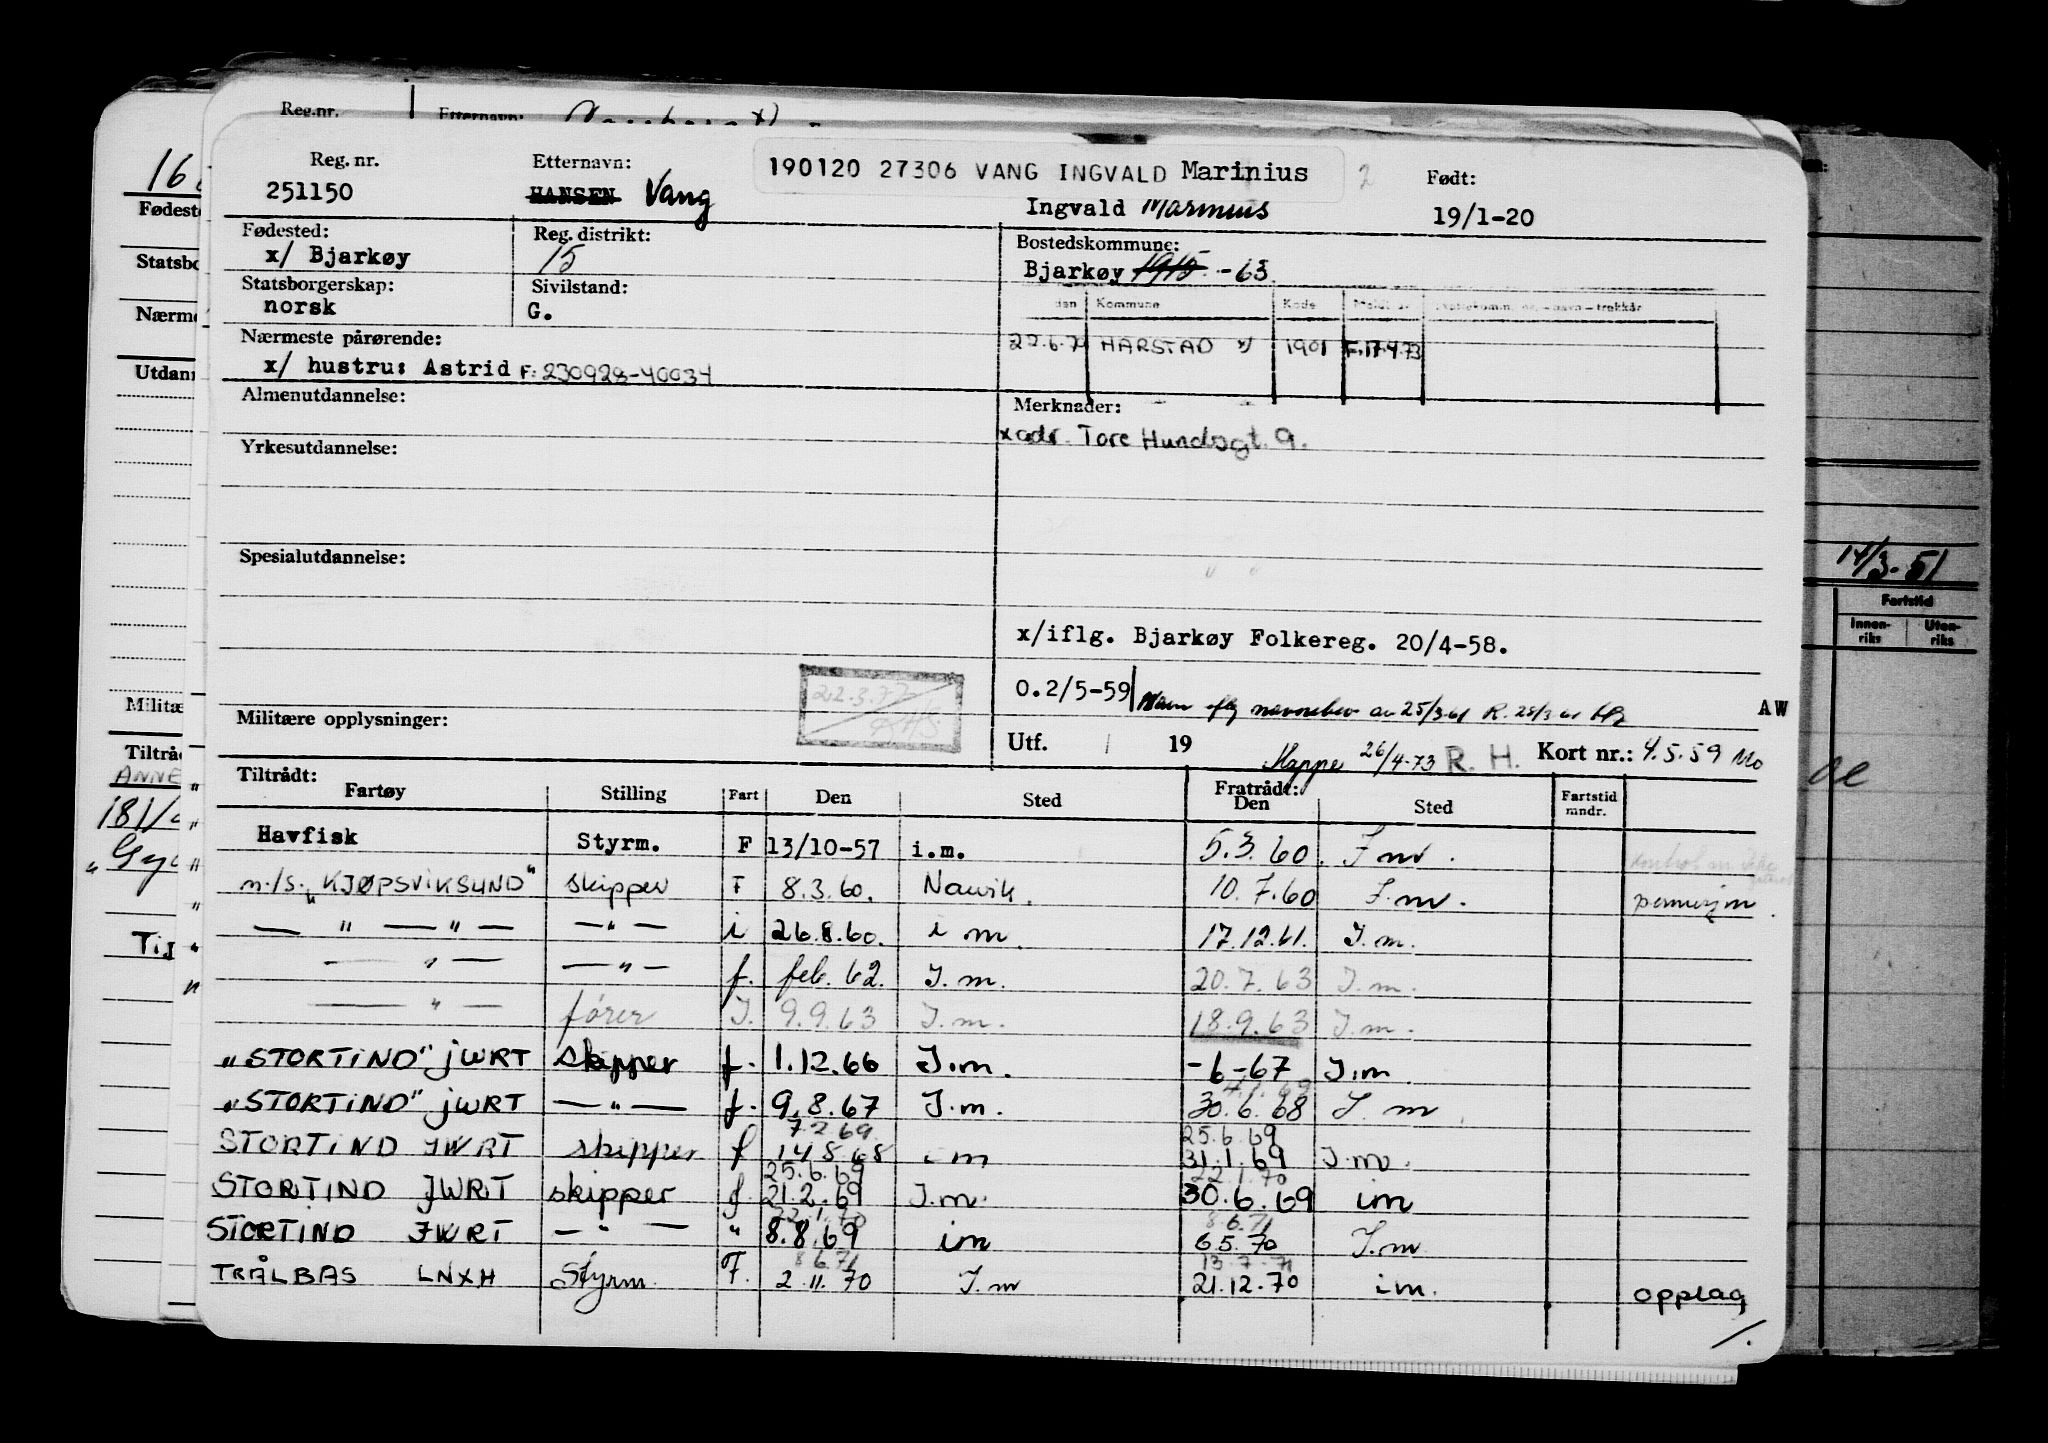 Reg.nr.
Reg. nr. Etternavn: 190120 27306 VANG INGVALD Marinius 2 Født:
251150 HANSEN Vang Ingvald Marinius 19/1-20
Fødested: Reg. distrikt: Bostedskommune:
x/ Bjarkøy 15 Bjarkøy 1915 -63
Statsborgerskap: Sivilstand: Kommune Kode
norsk G.
22.6.70 HARSTAD x) 1901 F.17.4.73
Nærmeste pårørende:
x/ hustru: Astrid F: 230928-40034
Almenutdannelse: Merknader:
x adr. Tore Hundsgt. 9.
Yrkesutdannelse:
Spesialutdannelse:
x/iflg. Bjarkøy Folkereg. 20/4-58.
22.3.77
O.2/5-59 Navn iflg navnebev av 25/3 61 R. 28/3 61 AW
Militære opplysninger:
Utf. 19 Mappe 26/4-73 R. H. Kort nr.: 4.5.59 Mo
Tiltrådt: Fratrådt:
Fartøy Stilling Fart Den Sted Den Sted Fartstid mndr.
Havfisk Styrm. F 13/10-57 i.m. 5.3.60. I m.
m/s. „KJØPSVIKSUND" skipper F 8.3.60. Narvik. 10.7.60 I.m. permisjon.
— " — " — — " — i 26.8.60. i m. 17.12.61. I.m.
— " — — " — f. feb. 62. I.m. 20.7.63 I.m.
— " — fører I. 9.9.63 I.m. 18.9.63 I.m.
„STORTIND" JWRT skipper f. 1.12.66 I.m. -6-67 I.m.
4.1.69
„STORTIND" JWRT — " — f. 9.8.67 I.m. 30.6.68 I.m
7.2.69 25.6.69
STORTIND JWRT skipper f 14.8.68 i m 31.1.69 I.m.
25.6.69 22.1.70
STORTIND JWRT skipper f. 21.2.69 I.m. 30.6.69 im
22.1.70 8.6.71
STORTIND JWRT — " — " 8.8.69 im 6.5.70 I.m
8.6.71 13.7.71
TRÅLBAS LNXH Styrm. F. 2.11.70 I.m 21.12.70 im. opplag
/.
14/3-51
Fartstid
Innen-riks Uten-riks